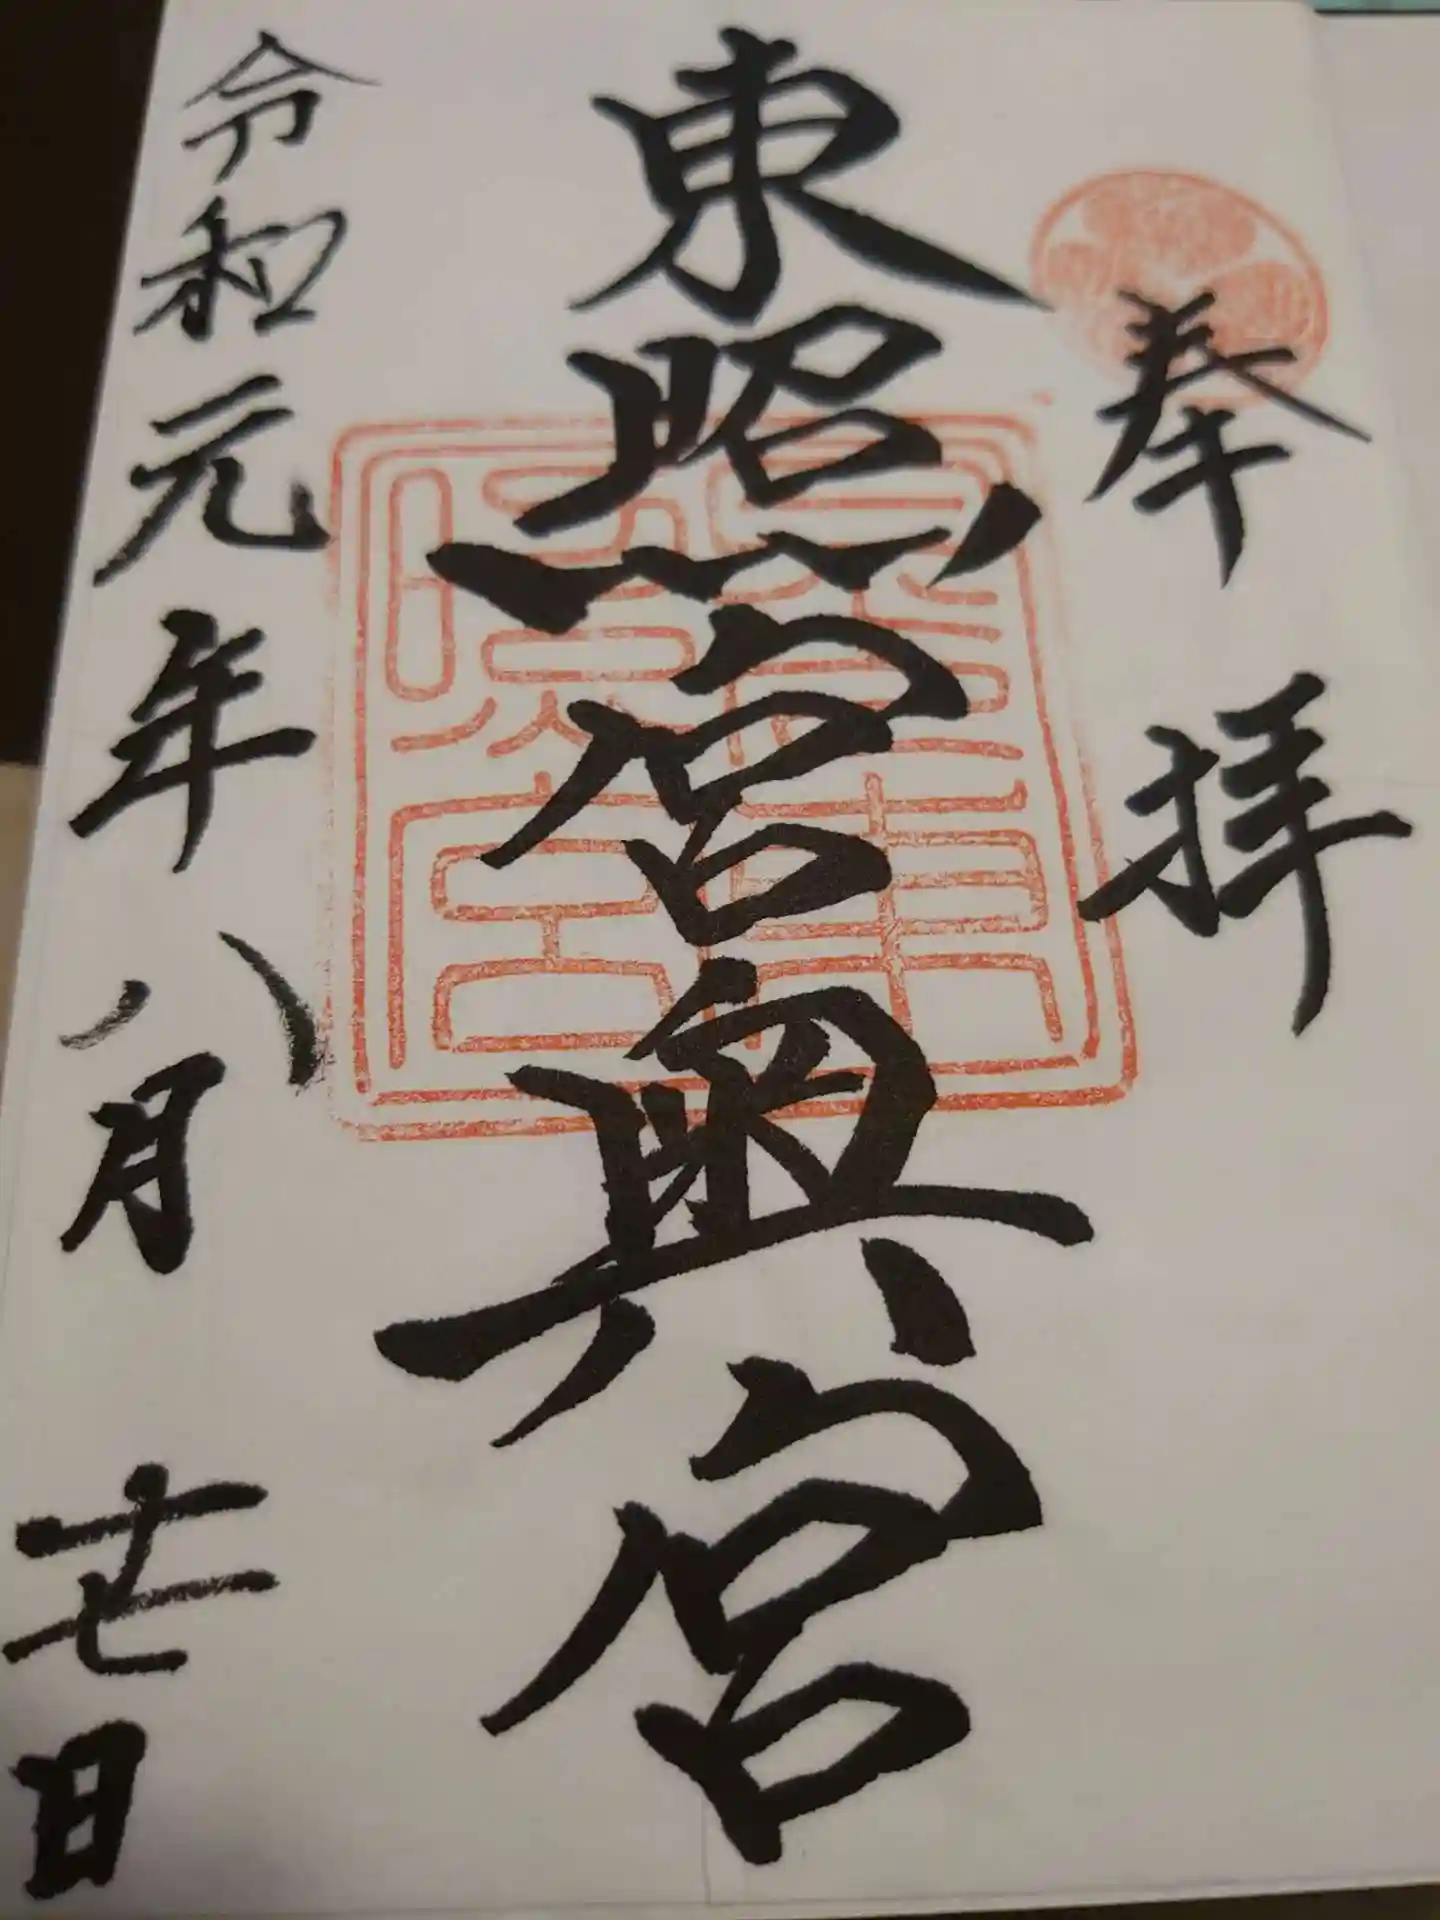 奉拝
東照宮奥宮
令和元年八月十七日